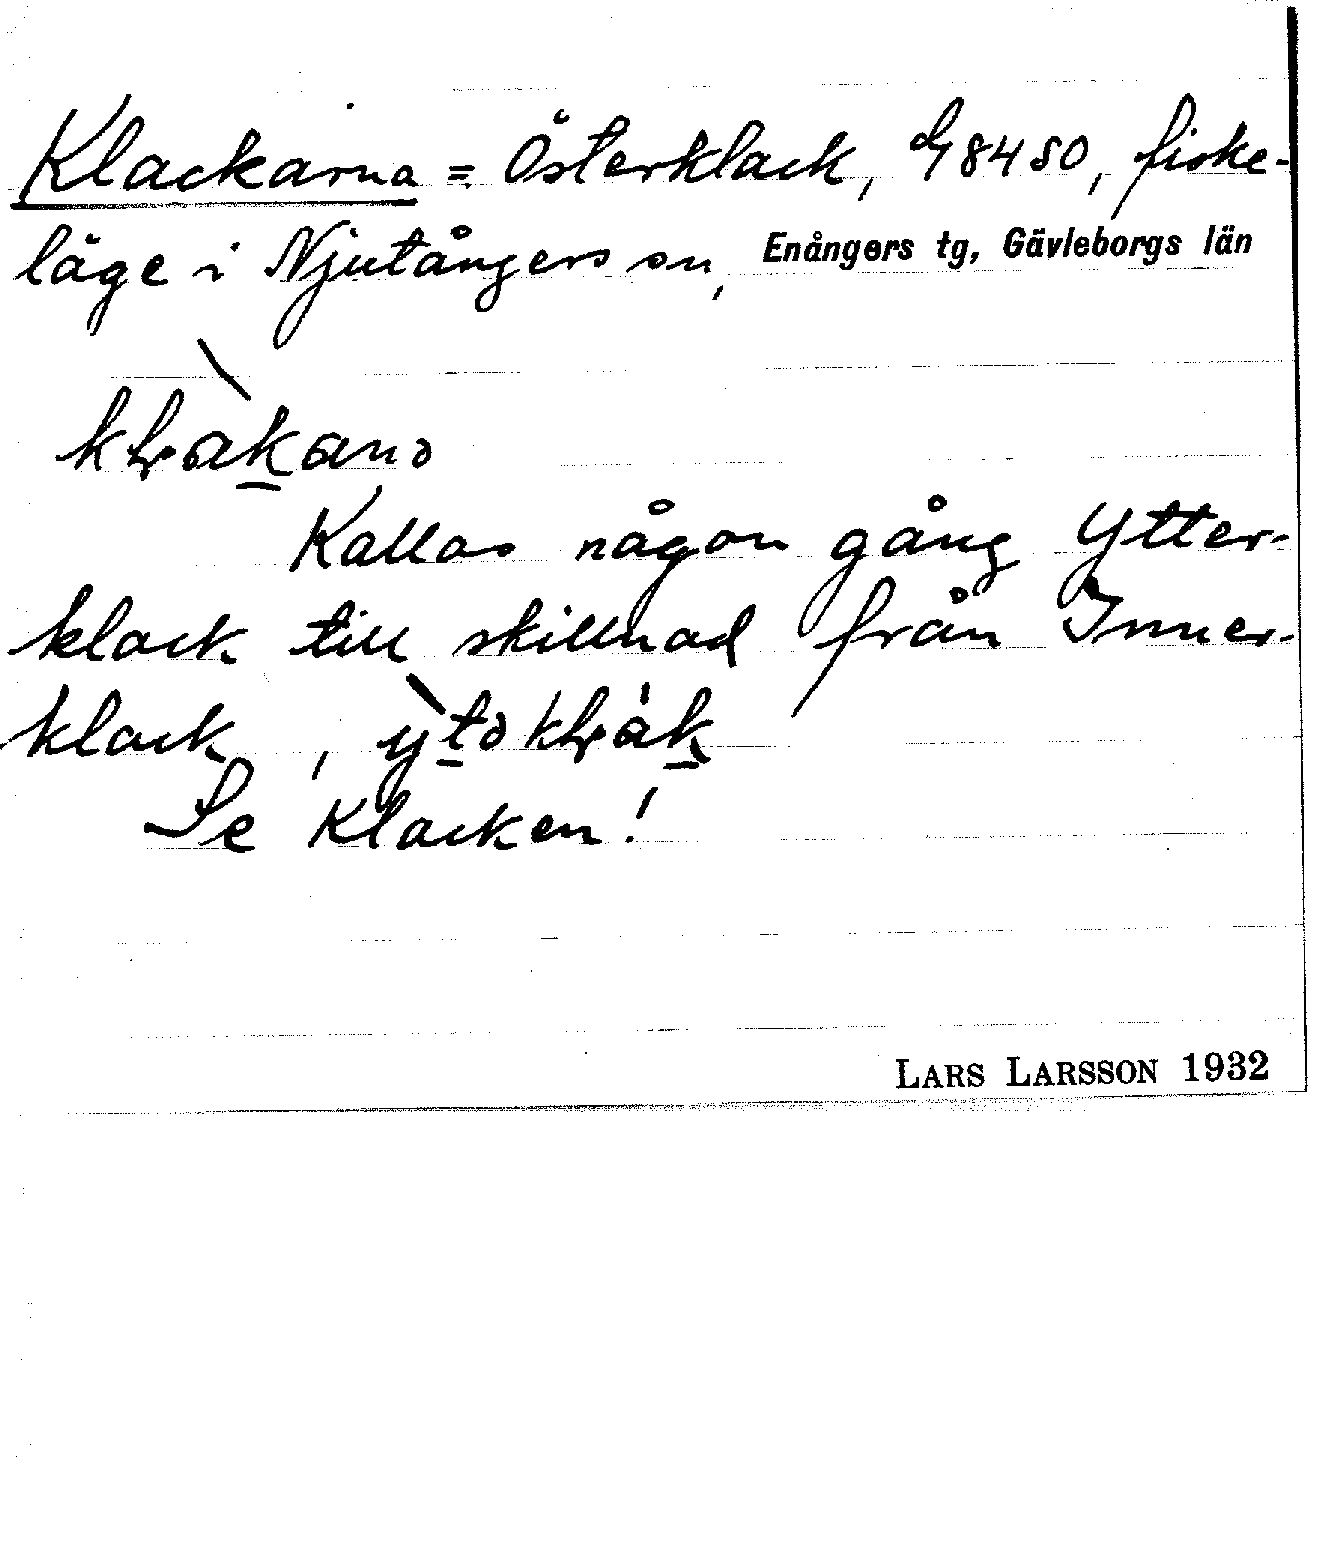 Klackarna = Österklack, G 8450, fiske-
läge i Njutångers sn, Enångers tg, Gävleborgs län
klakanə
Kallas någon gång Ytter-
klack till skillnad från Inner-
klack, ytəklak
Se Klacken!
LARS LARSSON 1932